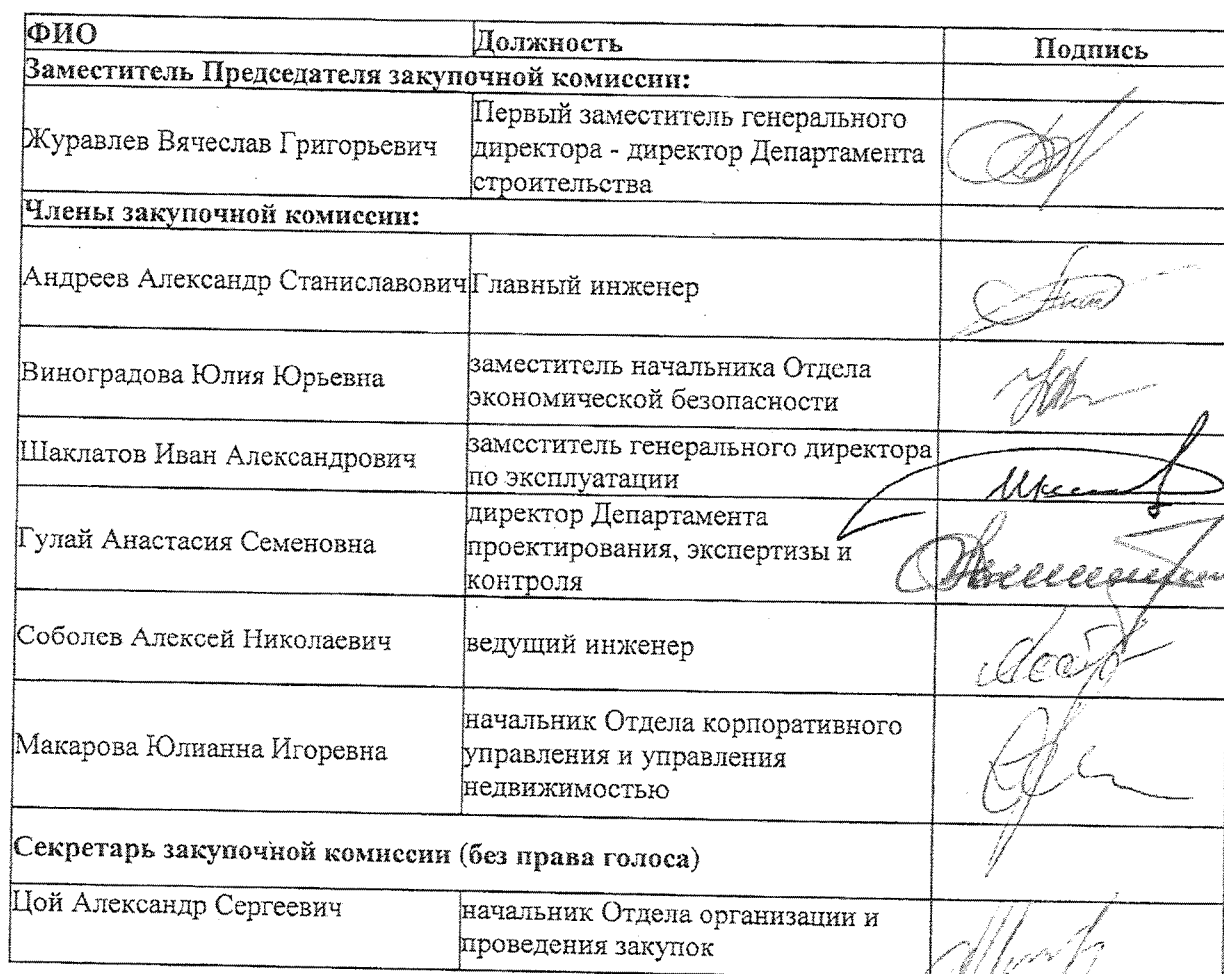 ФИО Должность Подпись
Заместитель Председателя закупочной комиссии:
Журавлев Вячеслав Григорьевич
Первый заместитель генерального
директора - директор Департамента
строительства
Члены закупочной комиссии:
Андреев Александр Станиславович Главный инженер
Виноградова Юлия Юрьевна
заместитель начальника Отдела
экономической безопасности
Шаклатов Иван Александрович
заместитель генерального директора
по эксплуатации
Гулай Анастасия Семеновна
директор Департамента
проектирования, экспертизы и
контроля
Соболев Алексей Николаевич ведущий инженер
Макарова Юлианна Игоревна
начальник Отдела корпоративного
управления и управления
недвижимостью
Секретарь закупочной комиссии (без права голоса)
Цой Александр Сергеевич
начальник Отдела организации и
проведения закупок